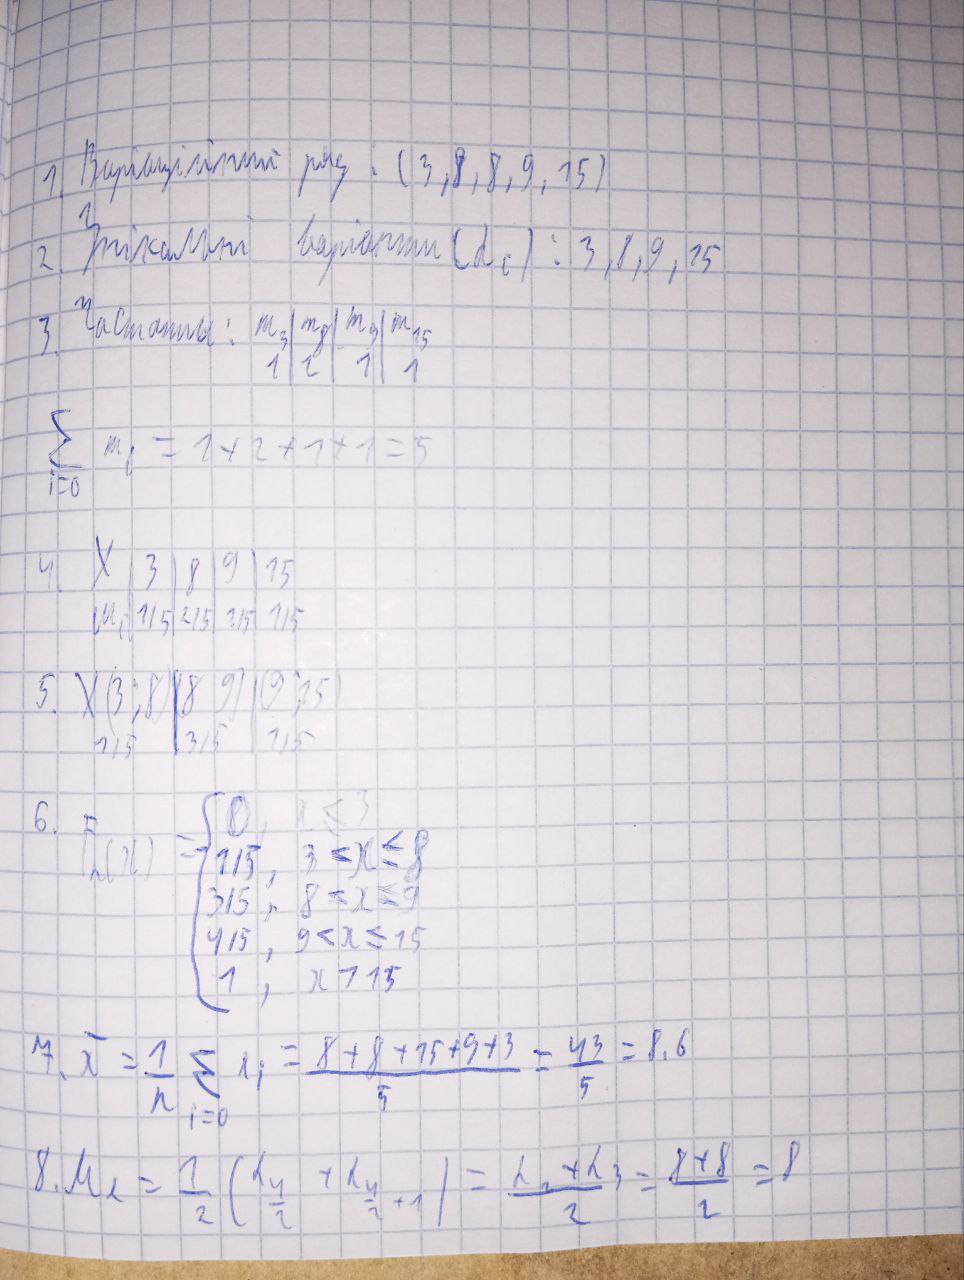 1. Варіаційний ряд: (3, 8, 8, 9, 15)
2. Унікальні варіанти (α_i): 3, 8, 9, 15
3. Частоти: m_3 | m_8 | m_9 | m_15
1 | 2 | 1 | 1
∑ i=0 m_i = 1+2+1+1=5
4. X | 3 | 8 | 9 | 15
m_i | 1/5 | 2/5 | 1/5 | 1/5
5. X (3;8) | (8 9) | (9;15)
1/5 | 3/5 | 1/5
6. F_n(x) = { 0, x ≤ 3
1/5, 3 < x ≤ 8
3/5, 8 < x ≤ 9
4/5, 9 < x ≤ 15
1, x > 15
7. x̄ = 1/n ∑ i=0 x_i = (8+8+15+9+3)/5 = 43/5 = 8.6
8. Me = 1/2 (α_{4/2} + α_{4/2+1}) = (α_2+α_3)/2 = (8+8)/2 = 8